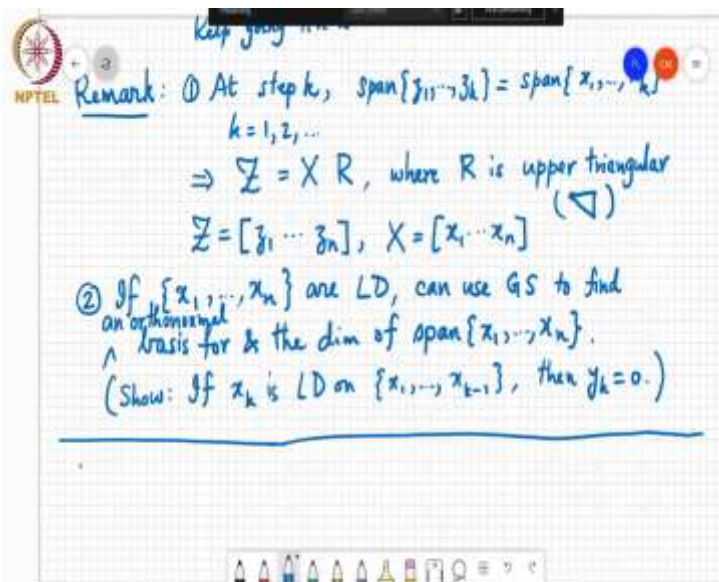 Keep going
NPTEL
Remark: ① At step k, span{z₁,…,zₖ} = span{x₁,…,xₖ}
k = 1, 2, …
⇒ Z = X R, where R is upper triangular
(▽)
Z = [z₁ ⋯ zₙ], X = [x₁ ⋯ xₙ]
② If {x₁,…,xₙ} are LD, can use GS to find
an orthonormal
^ basis for & the dim of span{x₁,…,xₙ}.
(Show: If xₖ is LD on {x₁,…,xₖ₋₁}, then yₖ = 0.)